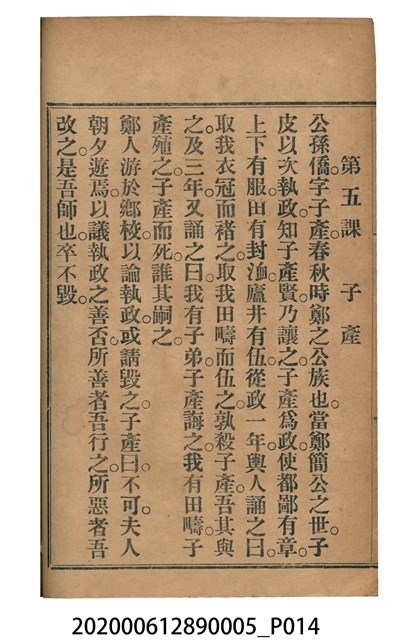 第五課　子產
公孫僑。字子產。春秋時鄭之公族也。當鄭簡公之世。子
皮以次執政。知子產賢。乃讓之。子產爲政。使都鄙有章。
上下有服。田有封洫。廬井有伍。從政一年。輿人誦之曰。
取我衣冠而褚之。取我田疇而伍之。孰殺子產。吾其與
之。及三年。又誦之曰。我有子弟。子產誨之。我有田疇。子
產殖之。子產而死。誰其嗣之。
鄭人游於鄉校。以論執政。或請毀之。子產曰。不可。夫人
朝夕遊焉。以議執政之善否。所善者吾行之。所惡者吾
改之。是吾師也。卒不毀。
202000612890005_P014